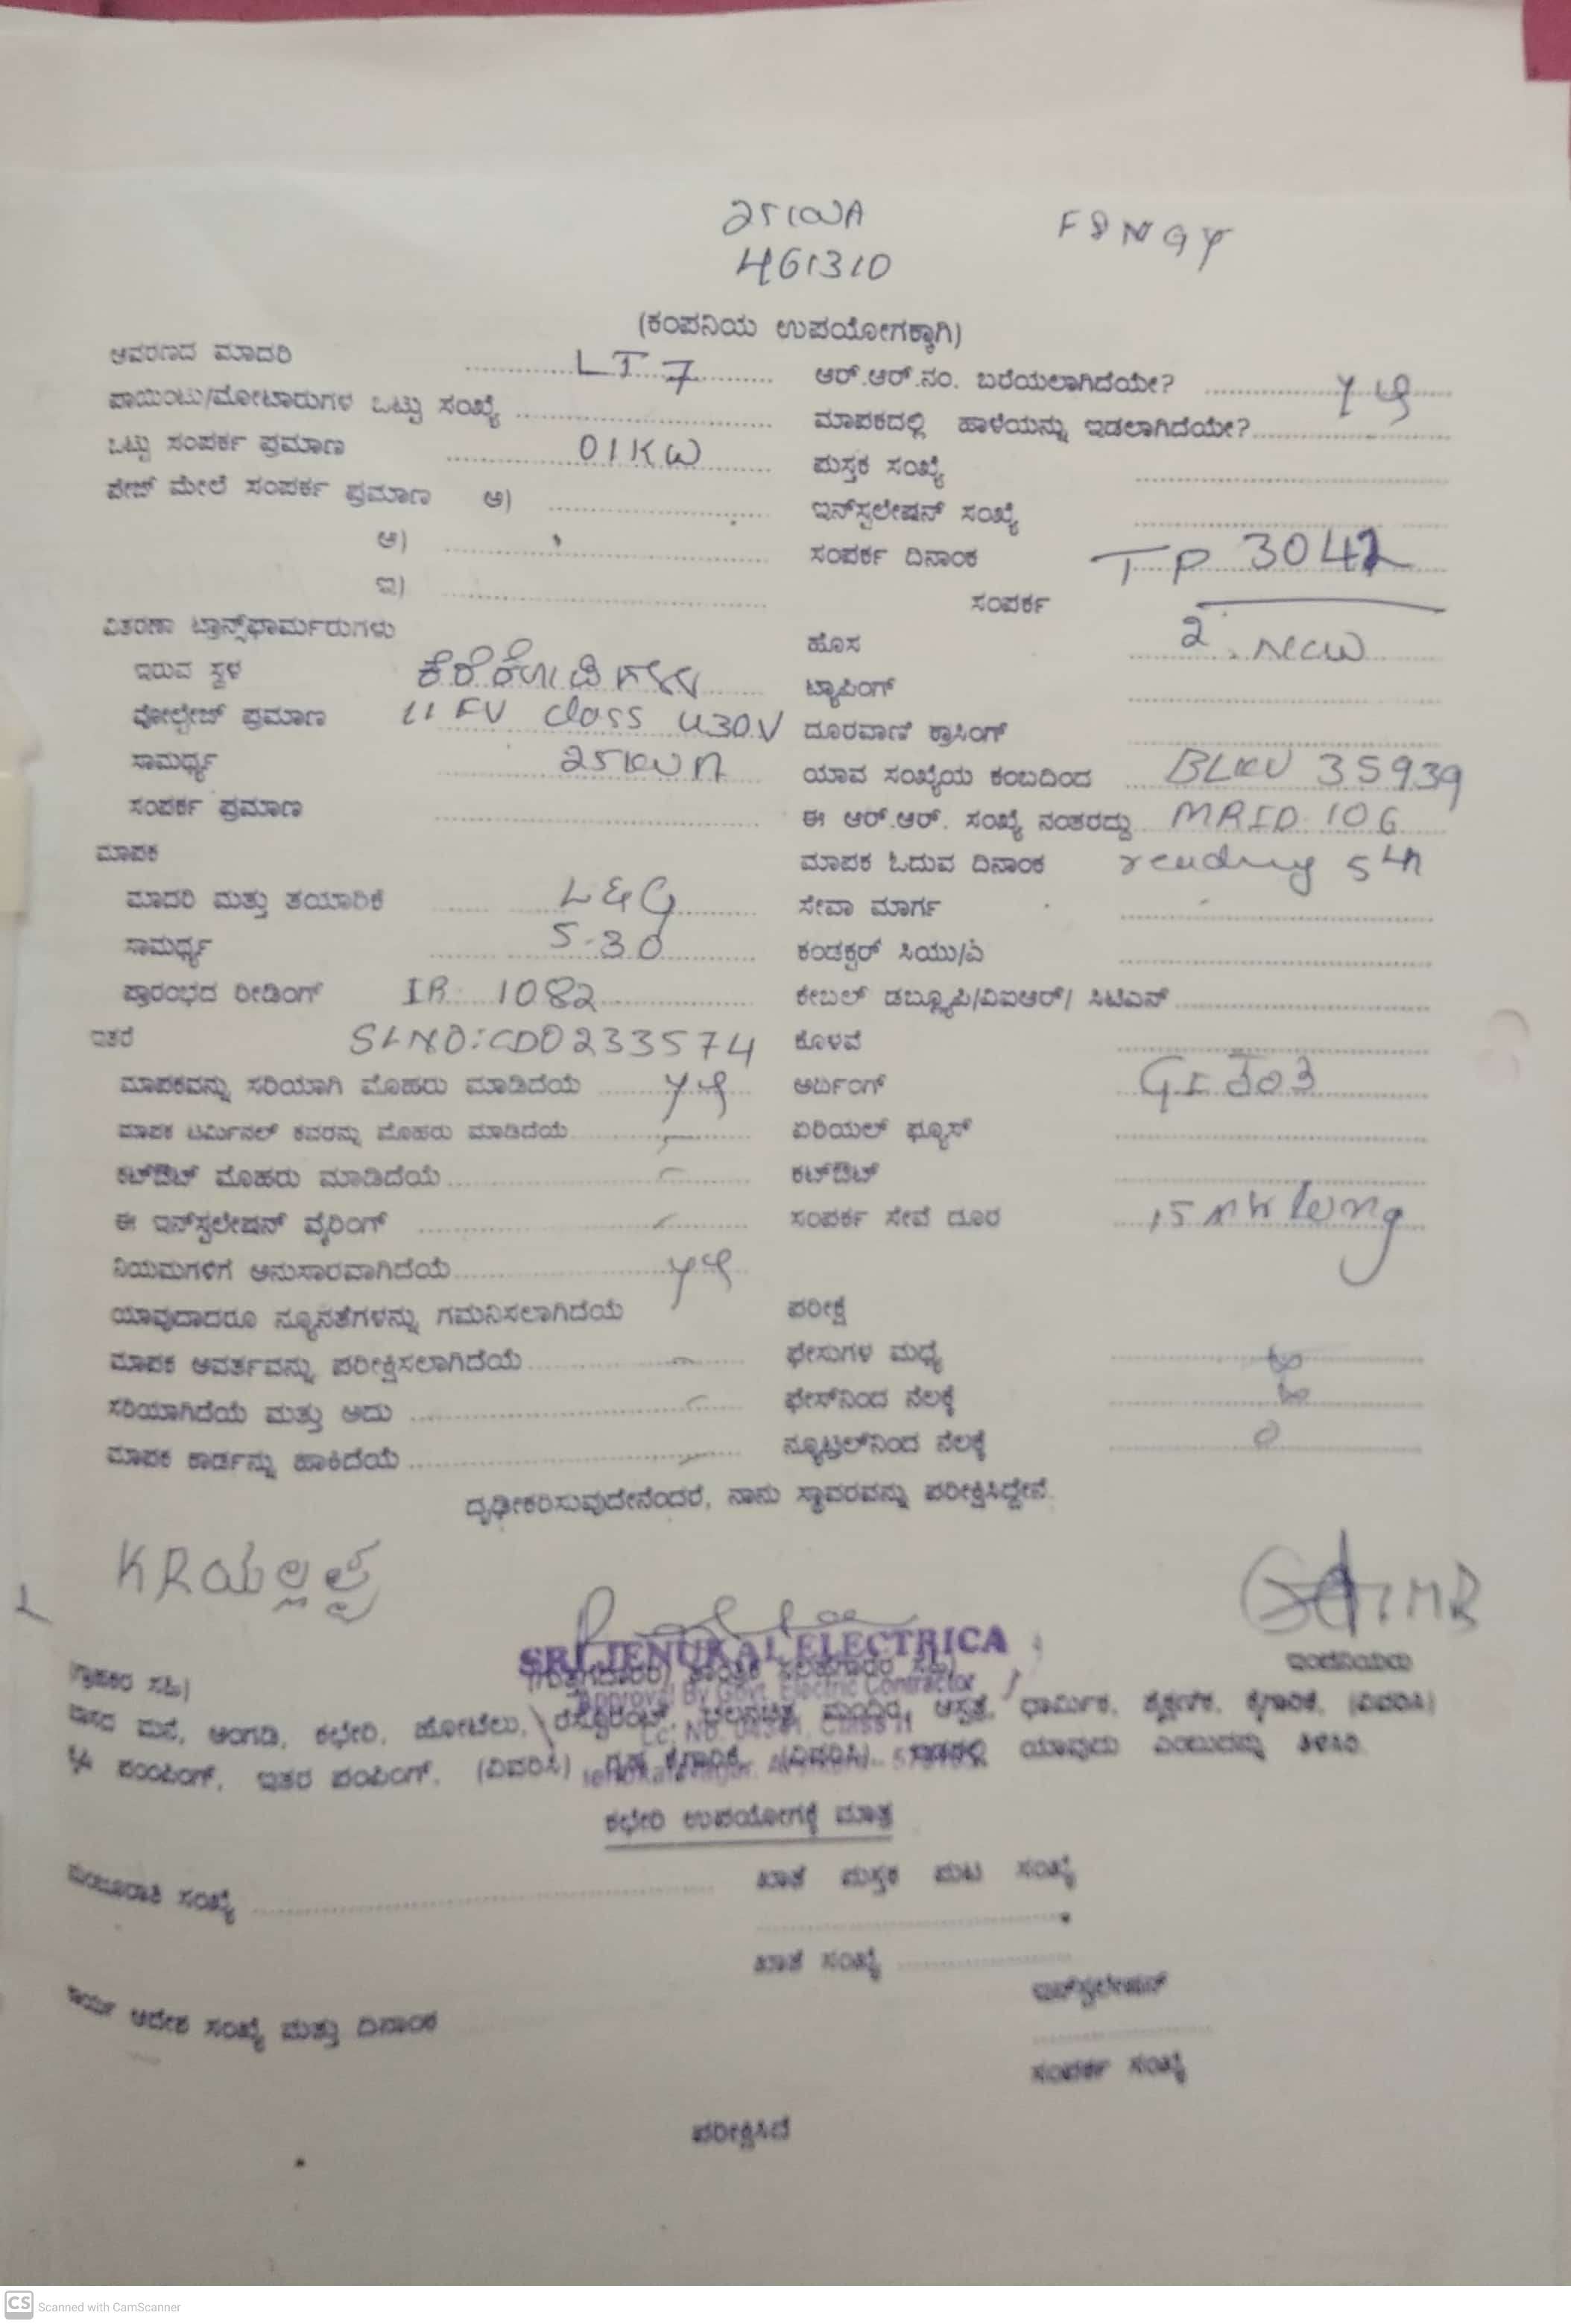 25KVA
461310
(ಕಂಪನಿಯ ಉಪಯೋಗಕ್ಕಾಗಿ)
ಆವರಣದ ಮಾದರಿ LT 7
ಪಾಯಿಂಟು/ಮೋಟಾರುಗಳ ಒಟ್ಟು ಸಂಖ್ಯೆ
ಒಟ್ಟು ಸಂಪರ್ಕ ಪ್ರಮಾಣ 01KW
ಪೇಜ್ ಮೇಲೆ ಸಂಪರ್ಕ ಪ್ರಮಾಣ ಅ)
ಆ)
ಇ)
ವಿತರಣಾ ಟ್ರಾನ್ಸ್‌ಫಾರ್ಮರುಗಳು
ಇರುವ ಸ್ಥಳ
ವೋಲ್ಟೇಜ್ ಪ್ರಮಾಣ class 430V
ಸಾಮರ್ಥ್ಯ 25KVA
ಸಂಪರ್ಕ ಪ್ರಮಾಣ
ಮಾಪಕ
ಮಾದರಿ ಮತ್ತು ತಯಾರಿಕೆ L&G
ಸಾಮರ್ಥ್ಯ 5-30
ಪ್ರಾರಂಭದ ರೀಡಿಂಗ್ IR 1082
ಇತರೆ SLNO:CD0233574
ಮಾಪಕವನ್ನು ಸರಿಯಾಗಿ ಮೊಹರು ಮಾಡಿದೆಯೆ
ಮಾಪಕ ಟರ್ಮಿನಲ್ ಕವರನ್ನು ಮೊಹರು ಮಾಡಿದೆಯೆ
ಕಟ್‌ಔಟ್ ಮೊಹರು ಮಾಡಿದೆಯೆ
ಈ ಇನ್‌ಸ್ಟಲೇಷನ್ ವೈರಿಂಗ್
ನಿಯಮಗಳಿಗೆ ಅನುಸಾರವಾಗಿದೆಯೆ
ಯಾವುದಾದರೂ ನ್ಯೂನತೆಗಳನ್ನು ಗಮನಿಸಲಾಗಿದೆಯೆ
ಮಾಪಕ ಆವರ್ತವನ್ನು ಪರೀಕ್ಷಿಸಲಾಗಿದೆಯೆ
ಸರಿಯಾಗಿದೆಯೆ ಮತ್ತು ಅದು
ಮಾಪಕ ಕಾರ್ಡನ್ನು ಹಾಕಿದೆಯೆ
ಆರ್.ಆರ್.ನಂ. ಬರೆಯಲಾಗಿದೆಯೇ?
ಮಾಪಕದಲ್ಲಿ ಹಾಳೆಯನ್ನು ಇಡಲಾಗಿದೆಯೇ?
ಪುಸ್ತಕ ಸಂಖ್ಯೆ
ಇನ್‌ಸ್ಟಲೇಷನ್ ಸಂಖ್ಯೆ
ಸಂಪರ್ಕ ದಿನಾಂಕ TP 3042
ಸಂಪರ್ಕ
ಹೊಸ
ಟ್ಯಾಪಿಂಗ್
ದೂರವಾಣಿ ಕ್ರಾಸಿಂಗ್
ಯಾವ ಸಂಖ್ಯೆಯ ಕಂಬದಿಂದ 35939
ಈ ಆರ್.ಆರ್. ಸಂಖ್ಯೆ ನಂತರದ್ದು MRID 106
ಮಾಪಕ ಓದುವ ದಿನಾಂಕ reading 5th
ಸೇವಾ ಮಾರ್ಗ
ಕಂಡಕ್ಟರ್ ಸಿಯು/ಎ
ಕೇಬಲ್ ಡಬ್ಲ್ಯೂಪಿ/ವಿಐಆರ್/ ಸಿಟಿಎಸ್
ಕೊಳವೆ
ಅರ್ಥಿಂಗ್
ಏರಿಯಲ್ ಫ್ಯೂಸ್
ಕಟ್‌ಔಟ್
ಸಂಪರ್ಕ ಸೇವೆ ದೂರ
ಪರೀಕ್ಷೆ
ಫೇಸುಗಳ ಮಧ್ಯೆ
ಫೇಸ್‌ನಿಂದ ನೆಲಕ್ಕೆ
ನ್ಯೂಟ್ರಲ್‌ನಿಂದ ನೆಲಕ್ಕೆ 0
ದೃಢೀಕರಿಸುವುದೇನೆಂದರೆ, ನಾನು ಸ್ಥಾವರವನ್ನು ಪರೀಕ್ಷಿಸಿದ್ದೇನೆ.
KRಯಲ್ಲಪ್ಪ
SRI JENUKAL ELECTRICA
Approval By Govt. Electric Contractor
(ಗ್ರಾಹಕರ ಸಹಿ)
ಮನೆ, ಅಂಗಡಿ, ಕಛೇರಿ, ಹೋಟೆಲು, ಆಸ್ಪತ್ರೆ, ಧಾರ್ಮಿಕ, ಶೈಕ್ಷಣಿಕ, ಕೈಗಾರಿಕೆ, (ವಿವರಿಸಿ)
ಪಂಪಿಂಗ್, ಇತರ ಪಂಪಿಂಗ್, (ವಿವರಿಸಿ) ಗೃಹ ಕೈಗಾರಿಕೆ, (ವಿವರಿಸಿ) ಯಾವುದು ಎಂಬುದನ್ನು ತಿಳಿಸಿರಿ.
ಕಛೇರಿ ಉಪಯೋಗಕ್ಕೆ ಮಾತ್ರ
ಮಂಜೂರಾತಿ ಸಂಖ್ಯೆ
ಖಾತೆ ಪುಸ್ತಕ ಪುಟ ಸಂಖ್ಯೆ
ಖಾತೆ ಸಂಖ್ಯೆ
ಇನ್‌ಸ್ಟಲೇಷನ್
ಕಾರ್ಯ ಆದೇಶ ಸಂಖ್ಯೆ ಮತ್ತು ದಿನಾಂಕ
ಸಂಪರ್ಕ ಸಂಖ್ಯೆ
ಪರೀಕ್ಷಿಸಿದೆ
CS Scanned with CamScanner